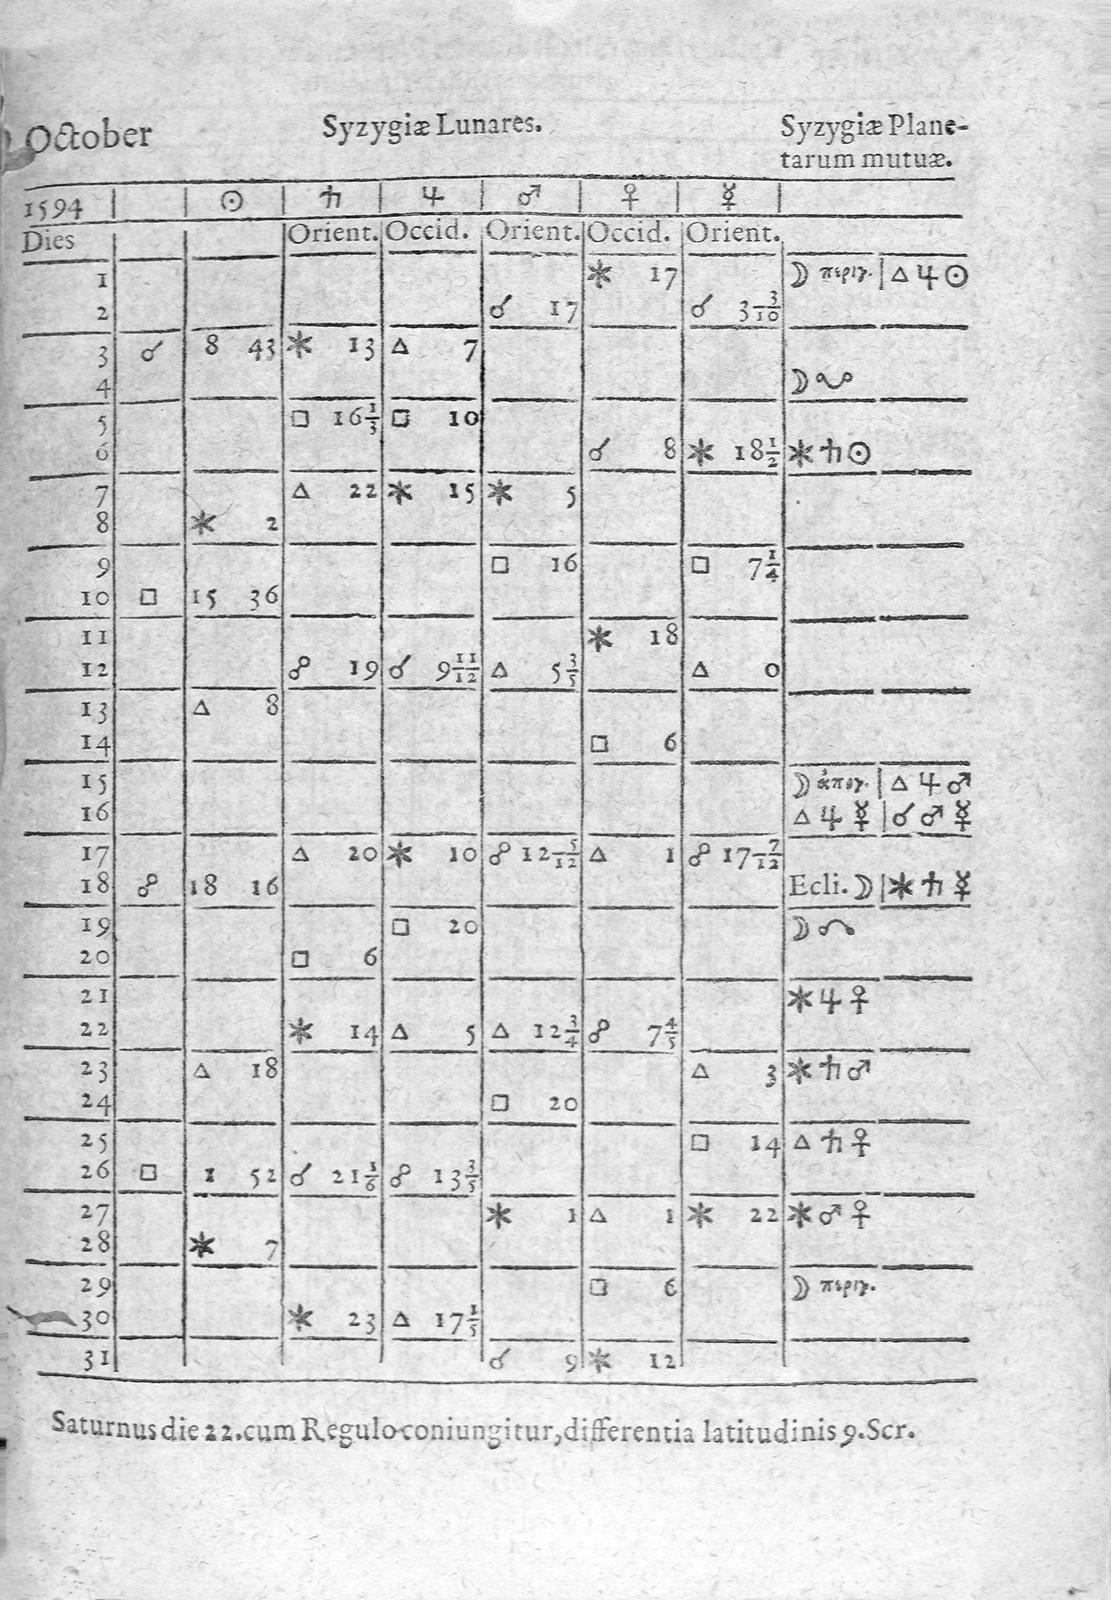 October Syzygiæ Lunares. Syzygiæ Plane-
tarum mutuæ.
1594 ☉ ♄ ♃ ♂ ♀ ☿
Dies Orient. Occid. Orient. Occid. Orient.
1 ⚹ 17 ☽ περιγ. | △ ♃ ☉
2 ☌ 17 ☌ 3 3/10
3 ☌ 8 43 ⚹ 13 △ 7
4 ☽ ☋
5 □ 16 1/3 □ 10
6 ☌ 8 ⚹ 18 1/2 ⚹ ♄ ☉
7 △ 22 ⚹ 15 ⚹ 5
8 ⚹ 2
9 □ 16 □ 7 1/4
10 □ 15 36
11 ⚹ 18
12 ☍ 19 ☌ 9 11/12 △ 5 3/5 △ 0
13 △ 8
14 □ 6
15 ☽ ἀπογ. | △ ♃ ♂
16 △ ♃ ☿ | ☌ ♂ ☿
17 △ 20 ⚹ 10 ☍ 12 5/12 △ 1 ☍ 17 7/12
18 ☍ 18 16 Ecli. ☽ | ⚹ ♄ ☿
19 □ 20 ☽ ☊
20 □ 6
21 ⚹ ♃ ♀
22 ⚹ 14 △ 5 △ 12 3/4 ☍ 7 4/5
23 △ 18 △ 3 ⚹ ♄ ♂
24 □ 20
25 □ 14 △ ♄ ♀
26 □ 1 52 ☌ 21 1/6 ☍ 13 3/5
27 ⚹ 1 △ 1 ⚹ 22 ⚹ ♂ ♀
28 ⚹ 7
29 □ 6 ☽ περιγ.
30 ⚹ 23 △ 17 1/5
31 ☌ 9 ⚹ 12
Saturnus die 22. cum Regulo coniungitur, differentia latitudinis 9. Scr.